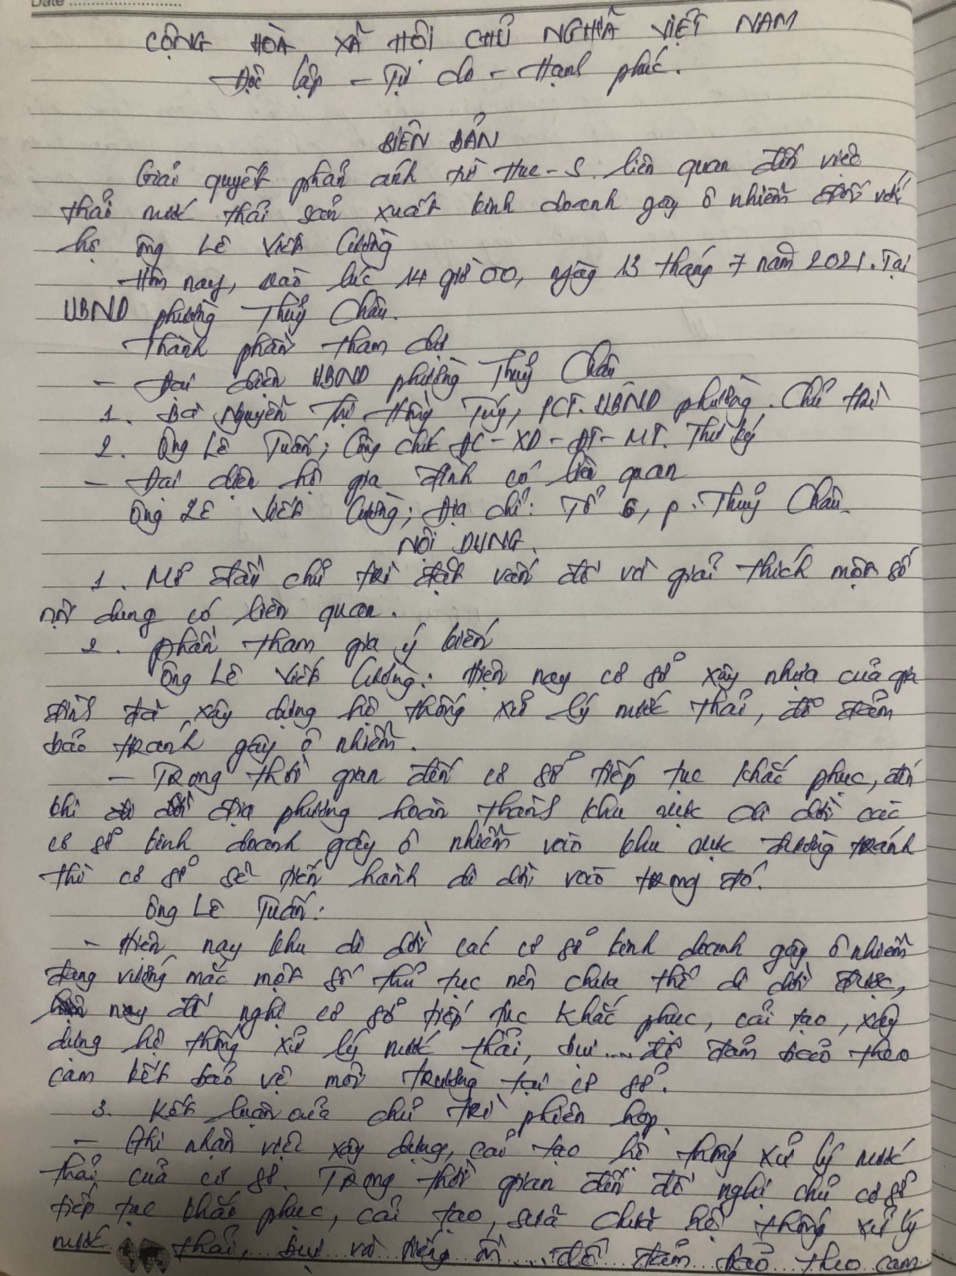 Date
CỘNG HÒA XÃ HỘI CHỦ NGHĨA VIỆT NAM
Độc lập - Tự do - Hạnh phúc.
BIÊN BẢN
Giải quyết phản ánh từ Hue-S liên quan đến việc
thải nước thải sản xuất kinh doanh gây ô nhiễm đối với
hộ ông Lê Viết Cường
Hôm nay, vào lúc 14 giờ 00, ngày 13 tháng 7 năm 2021. Tại
UBND phường Thuỷ Châu.
Thành phần tham dự
- Đại diện UBND phường Thuỷ Châu
1. Bà Nguyễn Thị Hồng Túy, PCT. UBND phường. Chủ trì
2. Ông Lê Tuấn; Công chức ĐC-XD-ĐT-MT. Thư ký
- Đại diện hộ gia đình có liên quan
Ông Lê Viết Cường; Địa chỉ: Tổ 6, P. Thuỷ Châu.
NỘI DUNG.
1. Mở đầu chủ trì đặt vấn đề và giải thích một số
nội dung có liên quan.
2. Phần tham gia ý kiến
Ông Lê Viết Cường: Hiện nay cơ sở xây nhựa của gia
đình đã xây dựng hệ thống xử lý nước thải, để đảm
bảo tránh gây ô nhiễm.
- Trong thời gian đến cơ sở tiếp tục khắc phục, đến
khi địa phương hoàn thành khu vực di dời các
cơ sở kinh doanh gây ô nhiễm vào khu vực đường tránh
thì cơ sở sẽ tiến hành di dời vào trong đó.
Ông Lê Tuấn:
- Hiện nay khu di dời các cơ sở kinh doanh gây ô nhiễm
đang vướng mắc một số thủ tục nên chưa thể di dời được,
nay đề nghị cơ sở tiếp tục khắc phục, cải tạo, xây
dựng hệ thống xử lý nước thải, bụi... để đảm bảo theo
cam kết bảo vệ môi trường tại cơ sở.
3. Kết luận của chủ trì phiên họp.
- Ghi nhận việc xây dựng, cải tạo hệ thống xử lý nước
thải của cơ sở. Trong thời gian đến đề nghị chủ cơ sở
tiếp tục khắc phục, cải tạo, sửa chữa hệ thống xử lý
nước thải, bụi và tiếng ồn ... để đảm bảo theo cam